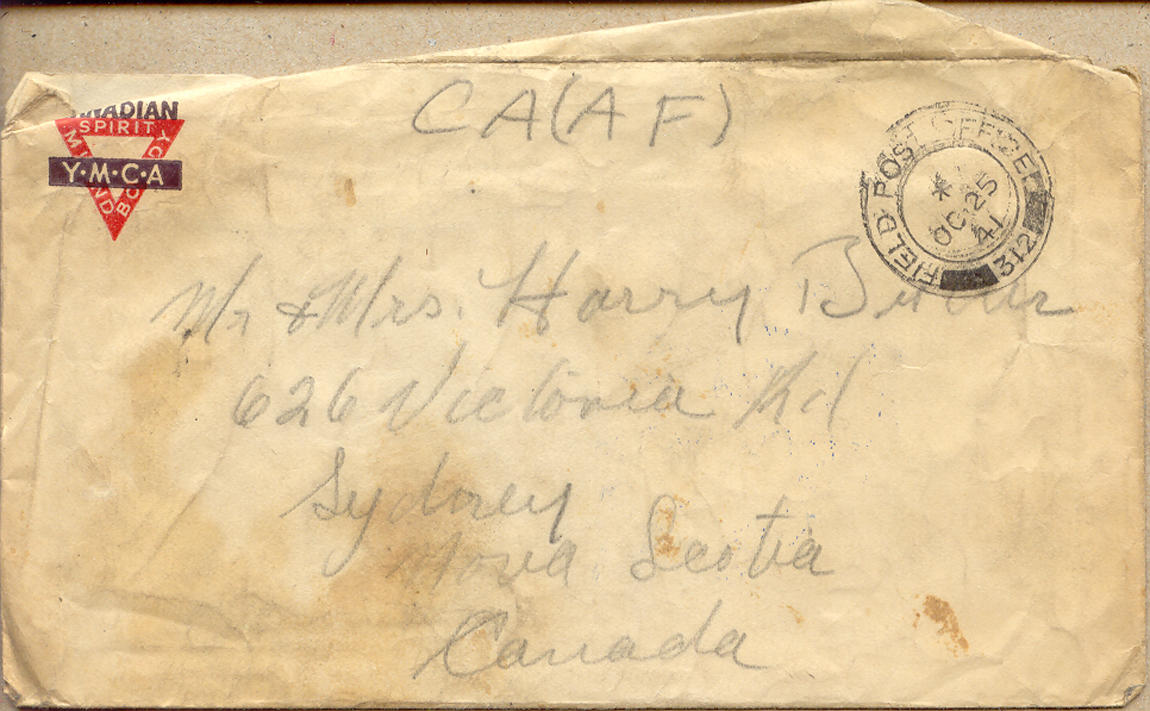 CANADIAN
SPIRIT
MIND
BODY
Y·M·C·A
CA(AF)
FIELD POST OFFICE
312
*
OC 25
41
Mr & Mrs. Harry
626 Victoria Rd
Sydney
Nova Scotia
Canada